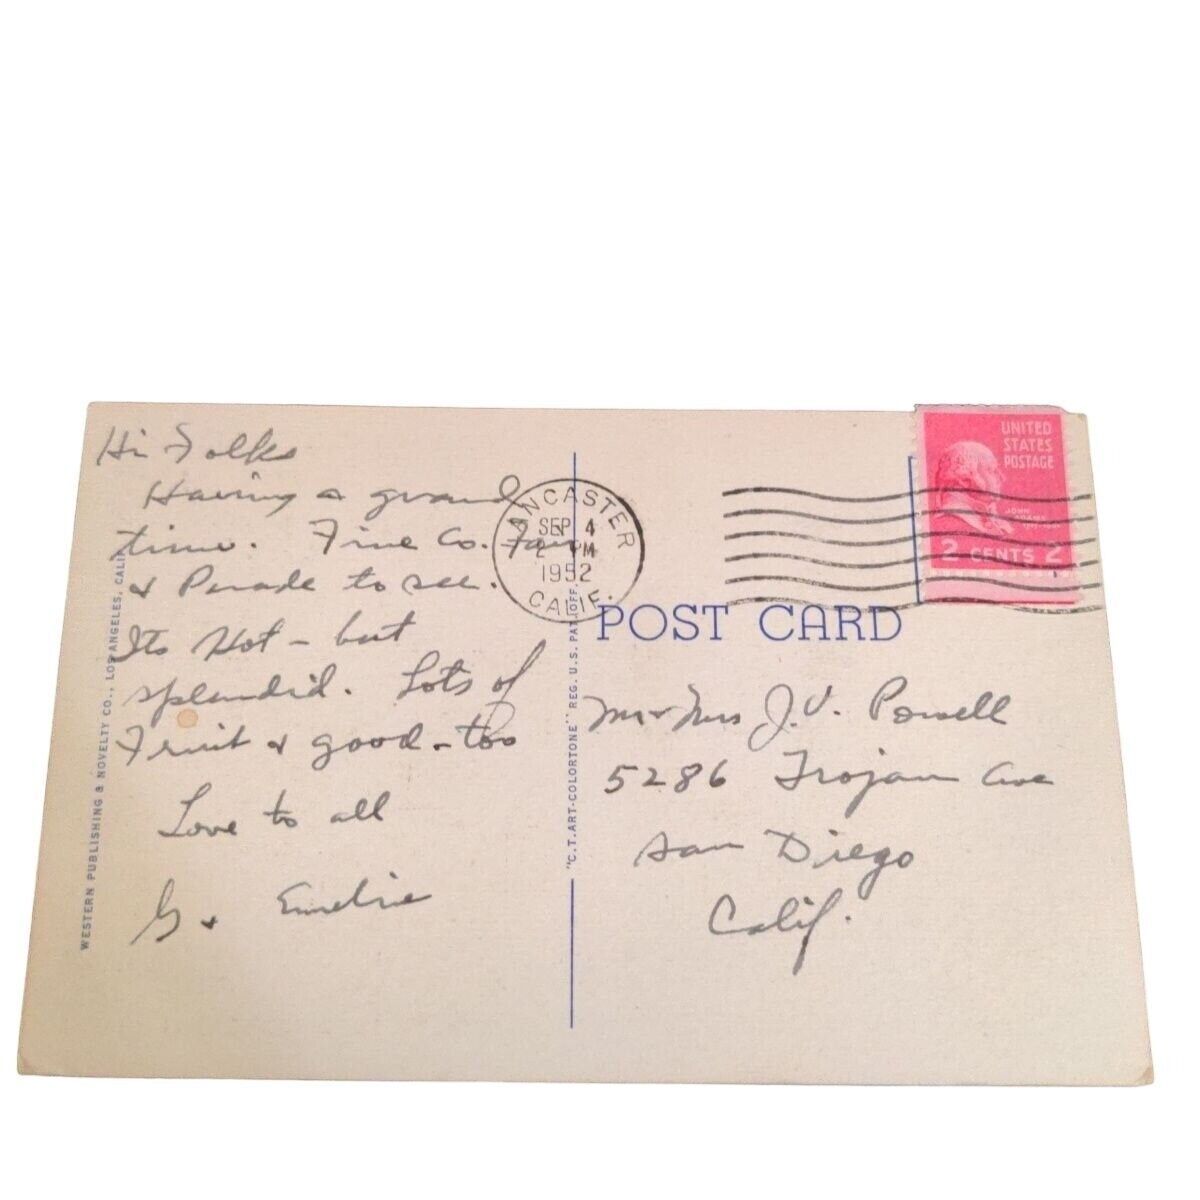 Hi Folks
Having a grand
time. Fine Co. Fair
& Parade to see.
Its Hot – but
splendid. Lots of
Fruit & good – too
Love to all
G & Emelie
WESTERN PUBLISHING & NOVELTY CO., LOS ANGELES, CALIF.
LANCASTER
SEP 4
2 PM
1952
CALIF.
"C.T. ART-COLORTONE" REG. U.S. PAT. OFF.
UNITED
STATES
POSTAGE
JOHN
ADAMS
2 CENTS 2
POST CARD
Mr & Mrs J.V. Powell
5286 Trojan Ave
San Diego
Calif.